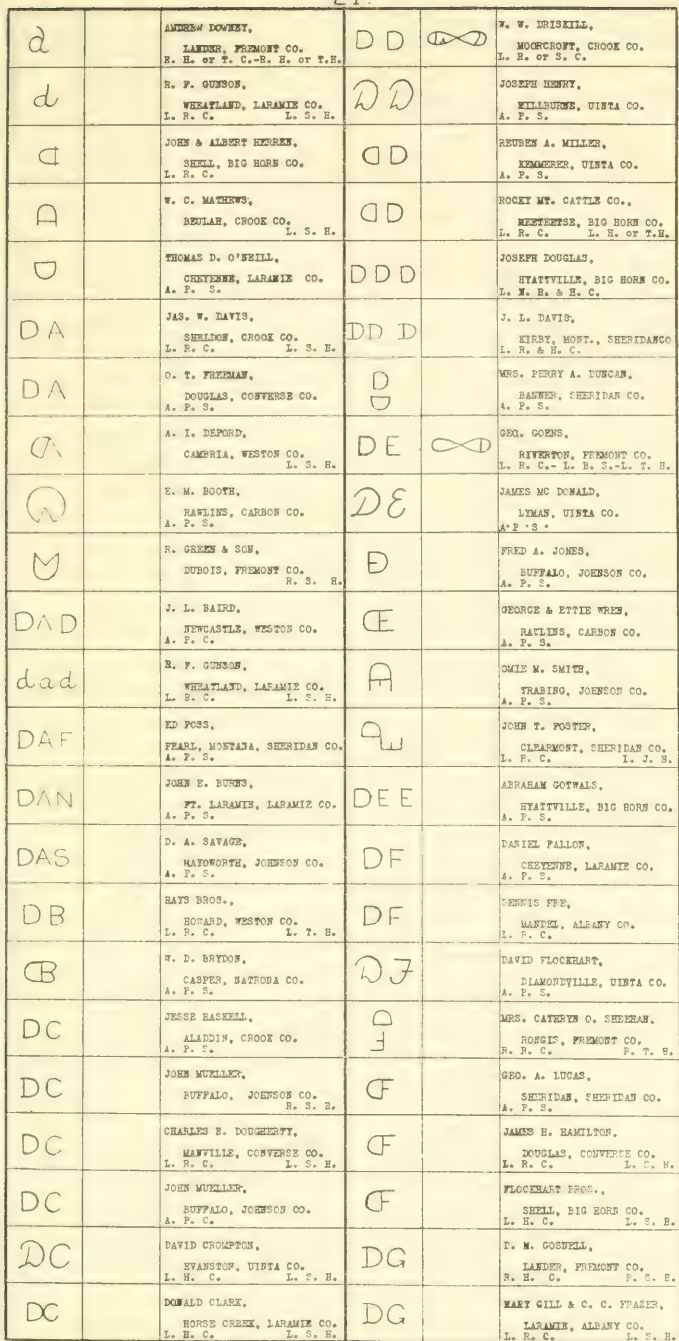 21.
d
ANDREW DOWNEY,
LANDER, FREMONT CO.
R. H. or T. C.-R. H. or T.H.
d
R. F. GUNSON,
WHEATLAND, LARAMIE CO.
L. R. C. L. S. H.
JOHN & ALBERT HERREN,
SHELL, BIG HORN CO.
L. R. C.
W. C. MATHEWS,
BEULAH, CROOK CO.
L. S. H.
THOMAS D. O'NEILL,
CHEYENNE, LARAMIE CO.
A. P. S.
DA
JAS. W. DAVIS,
SHELDON, CROOK CO.
L. R. C. L. S. H.
DA
O. T. FREEMAN,
DOUGLAS, CONVERSE CO.
A. P. S.
A. I. DEFORD,
CAMBRIA, WESTON CO.
L. S. H.
E. M. BOOTH,
RAWLINS, CARBON CO.
A. P. S.
R. GREEN & SON,
DUBOIS, FREMONT CO.
R. S. H.
DAD
J. L. BAIRD,
NEWCASTLE, WESTON CO.
A. P. C.
dad
R. F. GUNSON,
WHEATLAND, LARAMIE CO.
L. R. C. L. S. H.
DAF
ED FOSS,
PEARL, MONTANA, SHERIDAN CO.
A. P. S.
DAN
JOHN E. BURNS,
FT. LARAMIE, LARAMIE CO.
A. P. S.
DAS
D. A. SAVAGE,
MAYOWORTH, JOHNSON CO.
A. P. S.
DB
HAYS BROS.,
HOWARD, WESTON CO.
L. R. C. L. T. H.
W. D. BRYDON,
CASPER, NATRONA CO.
A. P. S.
DC
JESSE HASKELL,
ALADDIN, CROOK CO.
A. P. S.
DC
JOHN MUELLER,
BUFFALO, JOHNSON CO.
R. S. H.
DC
CHARLES E. DOUGHERTY,
MANVILLE, CONVERSE CO.
L. R. C. L. S. H.
DC
JOHN MUELLER,
BUFFALO, JOHNSON CO.
A. P. C.
DC
DAVID CROMPTON,
EVANSTON, UINTA CO.
L. H. C. L. S. H.
DC
DONALD CLARK,
HORSE CREEK, LARAMIE CO.
L. H. C. L. S. H.
DD
W. W. DRISKILL,
MOORCROFT, CROOK CO.
L. R. or S. C.
DD
JOSEPH HENRY,
MILLBURNE, UINTA CO.
A. P. S.
REUBEN A. MILLER,
KEMMERER, UINTA CO.
A. P. S.
ROCKY MT. CATTLE CO.,
MEETEETSE, BIG HORN CO.
L. R. C. L. H. or T.H.
DDD
JOSEPH DOUGLAS,
HYATTVILLE, BIG HORN CO.
L. N. R. & H. C.
DD D
J. L. DAVIS,
KIRBY, MONT., SHERIDANCO
L. R. & H. C.
MRS. PERRY A. DUNCAN,
BANNER, SHERIDAN CO.
A. P. S.
DE
GEO. GOENS,
RIVERTON, FREMONT CO.
L. R. C.- L. B. S.-L. T. H.
DE
JAMES MC DONALD,
LYMAN, UINTA CO.
A.P.S.
FRED A. JONES,
BUFFALO, JOHNSON CO.
A. P. S.
GEORGE & ETTIE WREN,
RAWLINS, CARBON CO.
A. P. S.
OMIE M. SMITH,
TRABING, JOHNSON CO.
A. P. S.
JOHN T. FOSTER,
CLEARMONT, SHERIDAN CO.
L. P. C. L. J. H.
DEE
ABRAHAM GOTWALS,
HYATTVILLE, BIG HORN CO.
A. P. S.
DF
DANIEL FALLON,
CHEYENNE, LARAMIE CO.
A. P. S.
DF
DENNIS
MANDEL, ALBANY CO.
L. R. C.
DF
DAVID FLOCKHART,
DIAMONDVILLE, UINTA CO.
A. P. S.
MRS. CATHRYN O. SHEEHAN,
RONGIS, FREMONT CO.
R. R. C.
GEO. A. LUCAS,
SHERIDAN, SHERIDAN CO.
A. P. S.
JAMES H. HAMILTON,
DOUGLAS, CONVERSE CO.
L. R. C. L. S. H.
FLOCKHART BROS.,
SHELL, BIG HORN CO.
L. H. C. L. S. H.
DG
M. GOSNELL,
LANDER, FREMONT CO.
R. H. C. R. S. H.
DG
MARY GILL & C. C. FRAZER,
LARAMIE, ALBANY CO.
L. R. C. L. S. H.